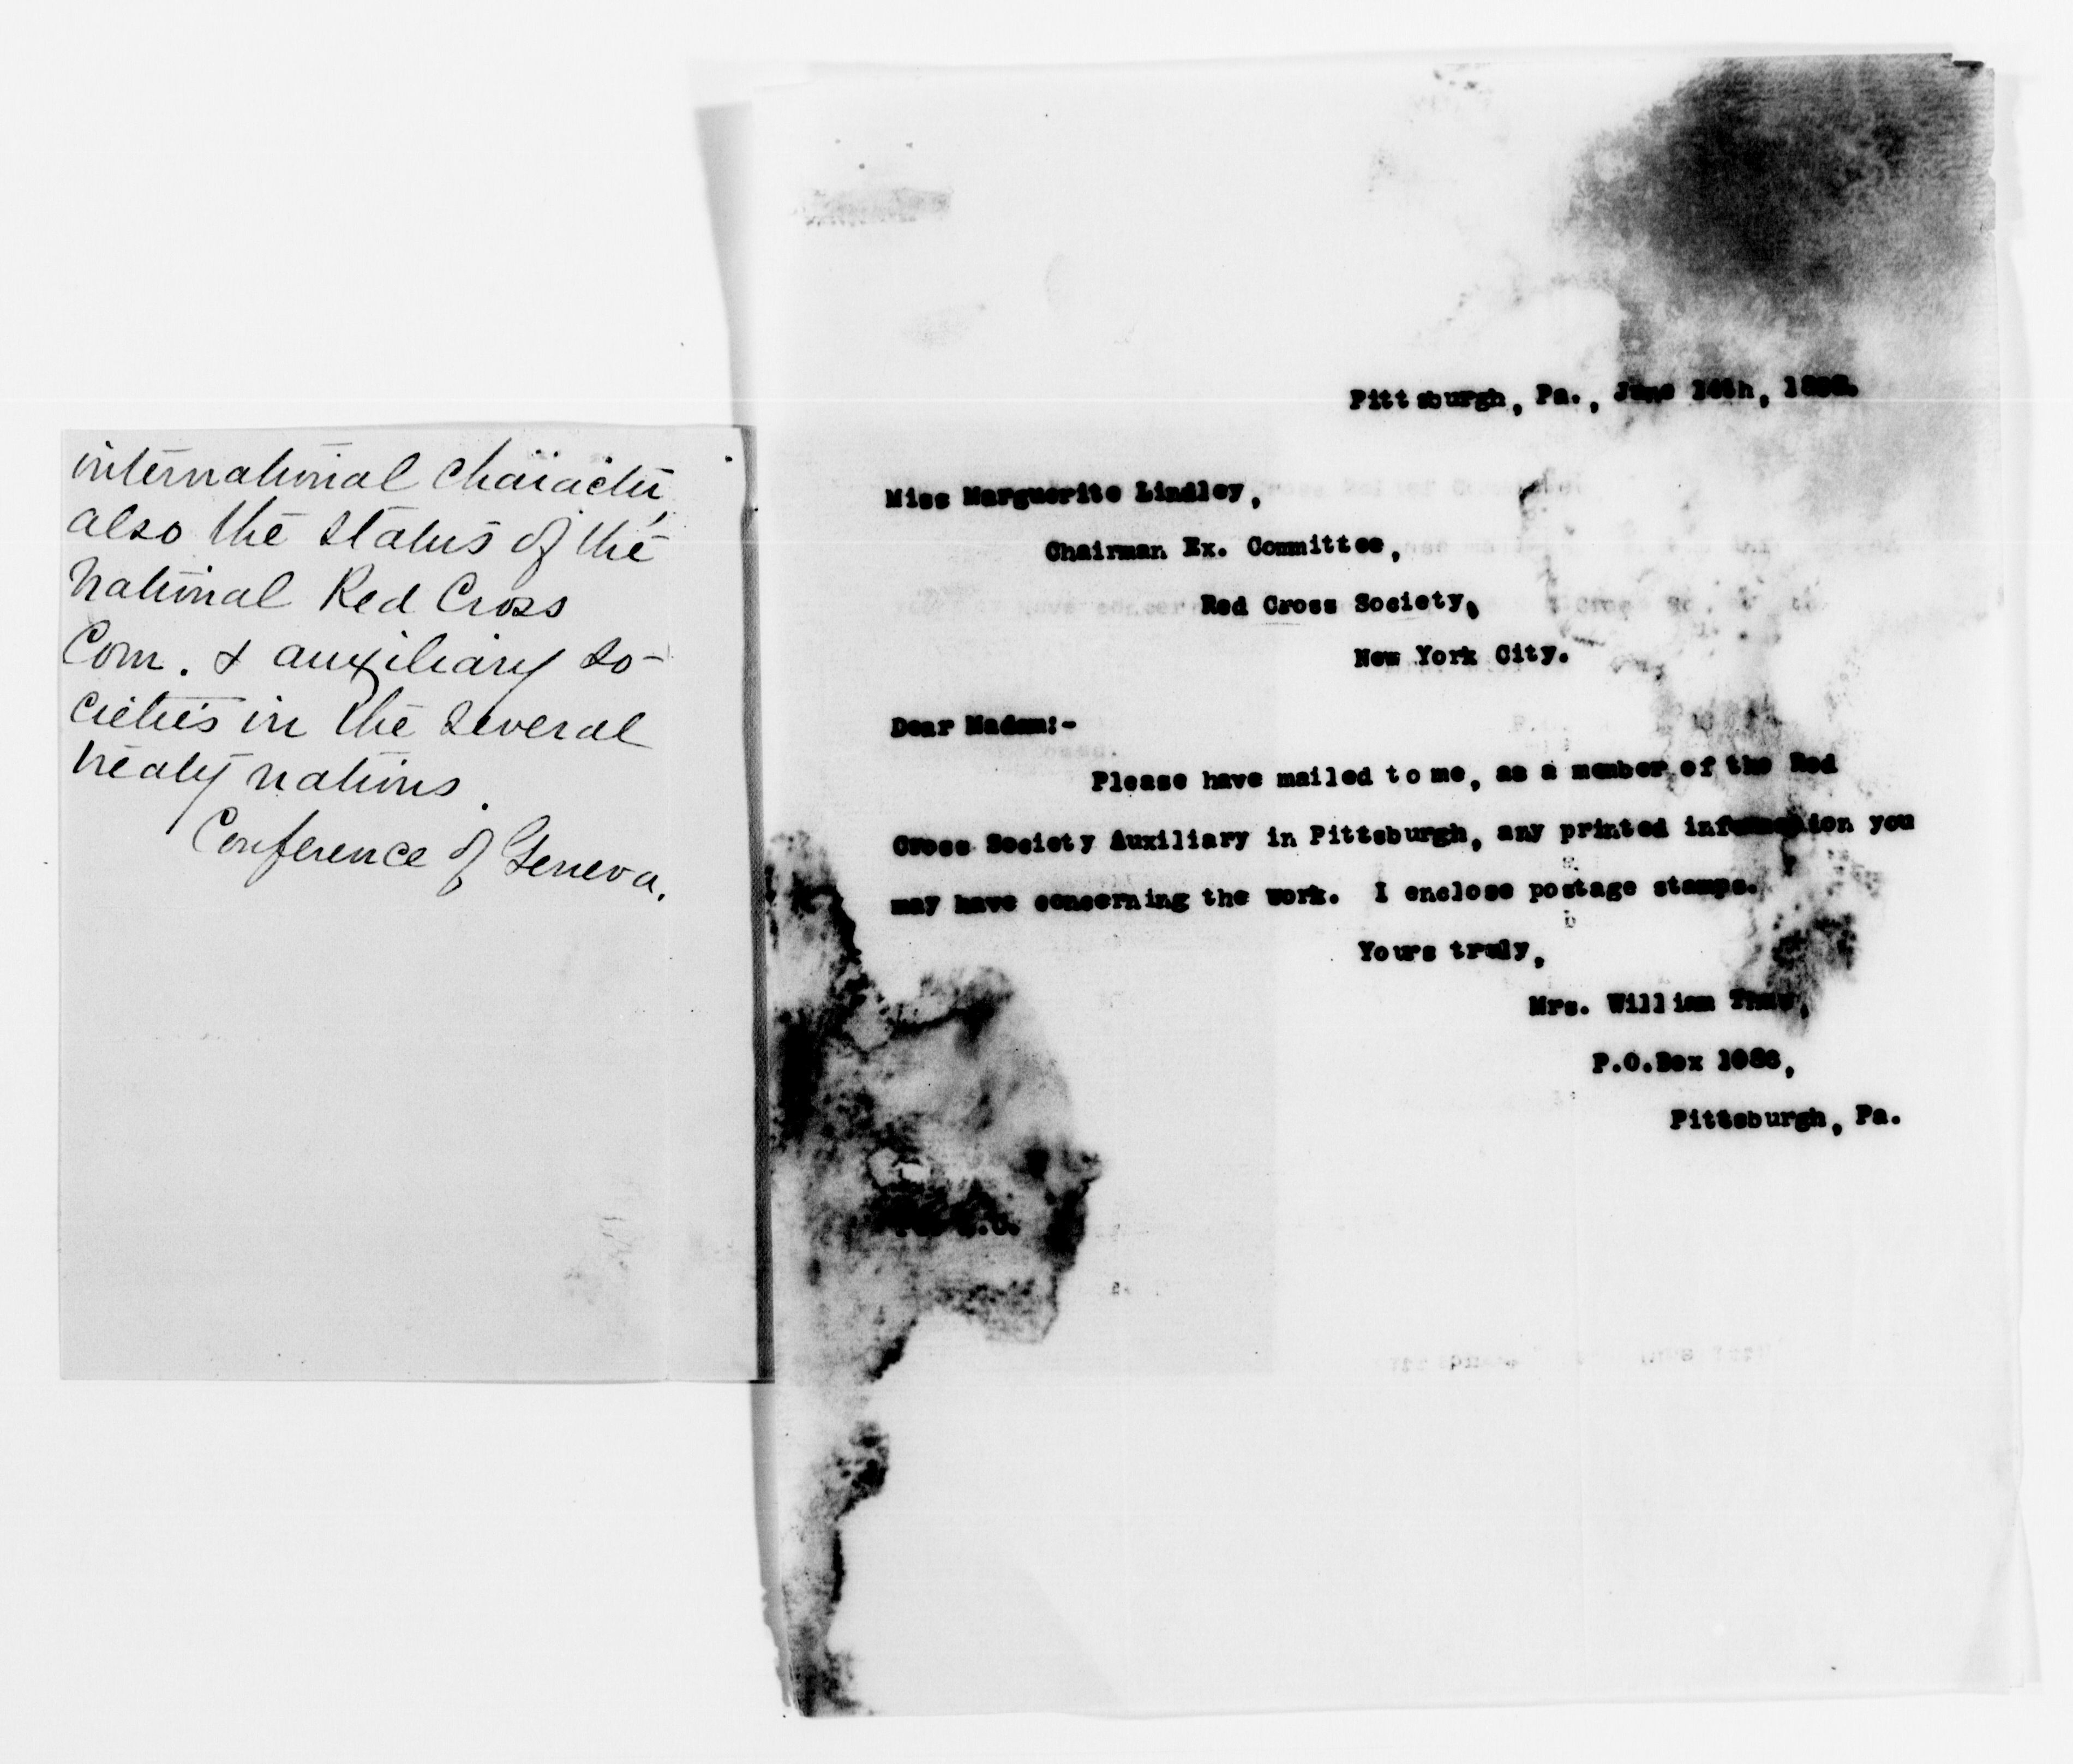 international character,
also the status of the
National Red Cross
Com. & auxiliary so-
cieties in the several
treaty nations.
Conference of Geneva.
Pittsburgh, Pa., June
Miss Marguerite Lindley,
Chairman Ex. Committee,
Red Cross Society,
New York City.
Dear Madam:-
Please have mailed to me, as a member of the Red
Cross Society Auxiliary in Pittsburgh, any printed information you
may have concerning the work. I enclose postage stamps.
Yours truly,
Mrs. William Thaw,
P.O.Box
Pittsburgh, Pa.